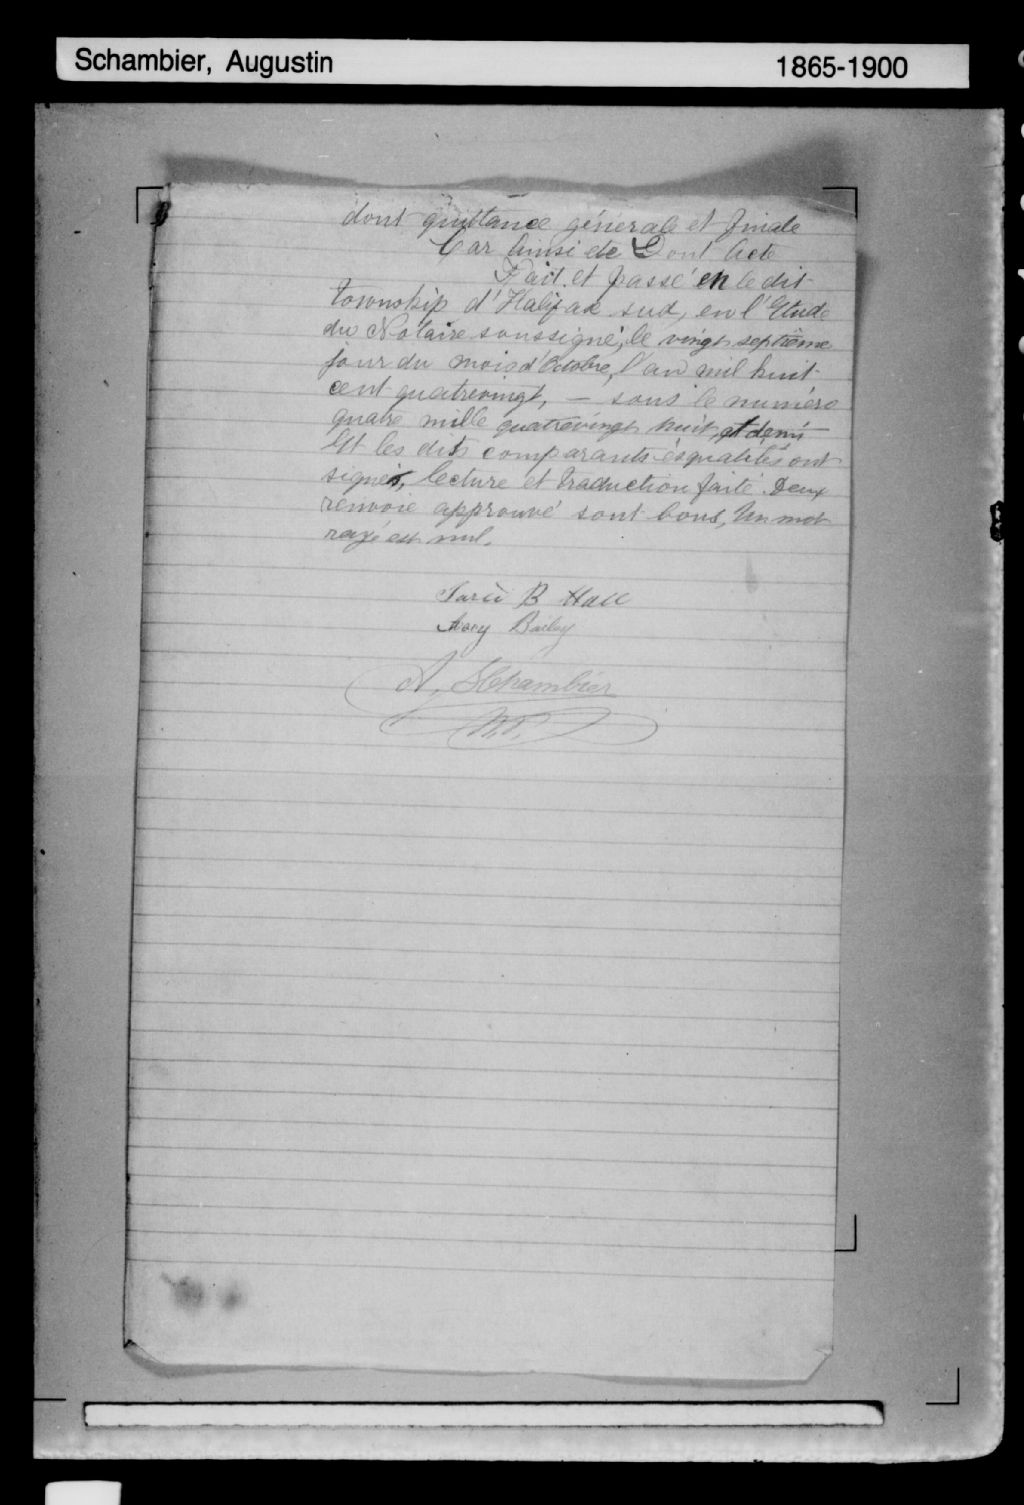 Schambier, Augustin 1865-1900
dont quittance générale et finale
Car Ainsi etc Dont Acte
Fait et passé en le dit
township d'Halifax sud, en l'Etude
du Notaire soussigné, le vingt septième
jour du mois d'Octobre, l'an mil huit
cent quatrevingt, — sous le numéro
quatre mille quatrevingt huit et demi
Et les dits comparants èsqualités ont
signés, lecture et traduction faite. Deux
renvoie approuvé sont bons, Un mot
rayé est nul.
B Hall
Bailey
A. SChambier
N.P.